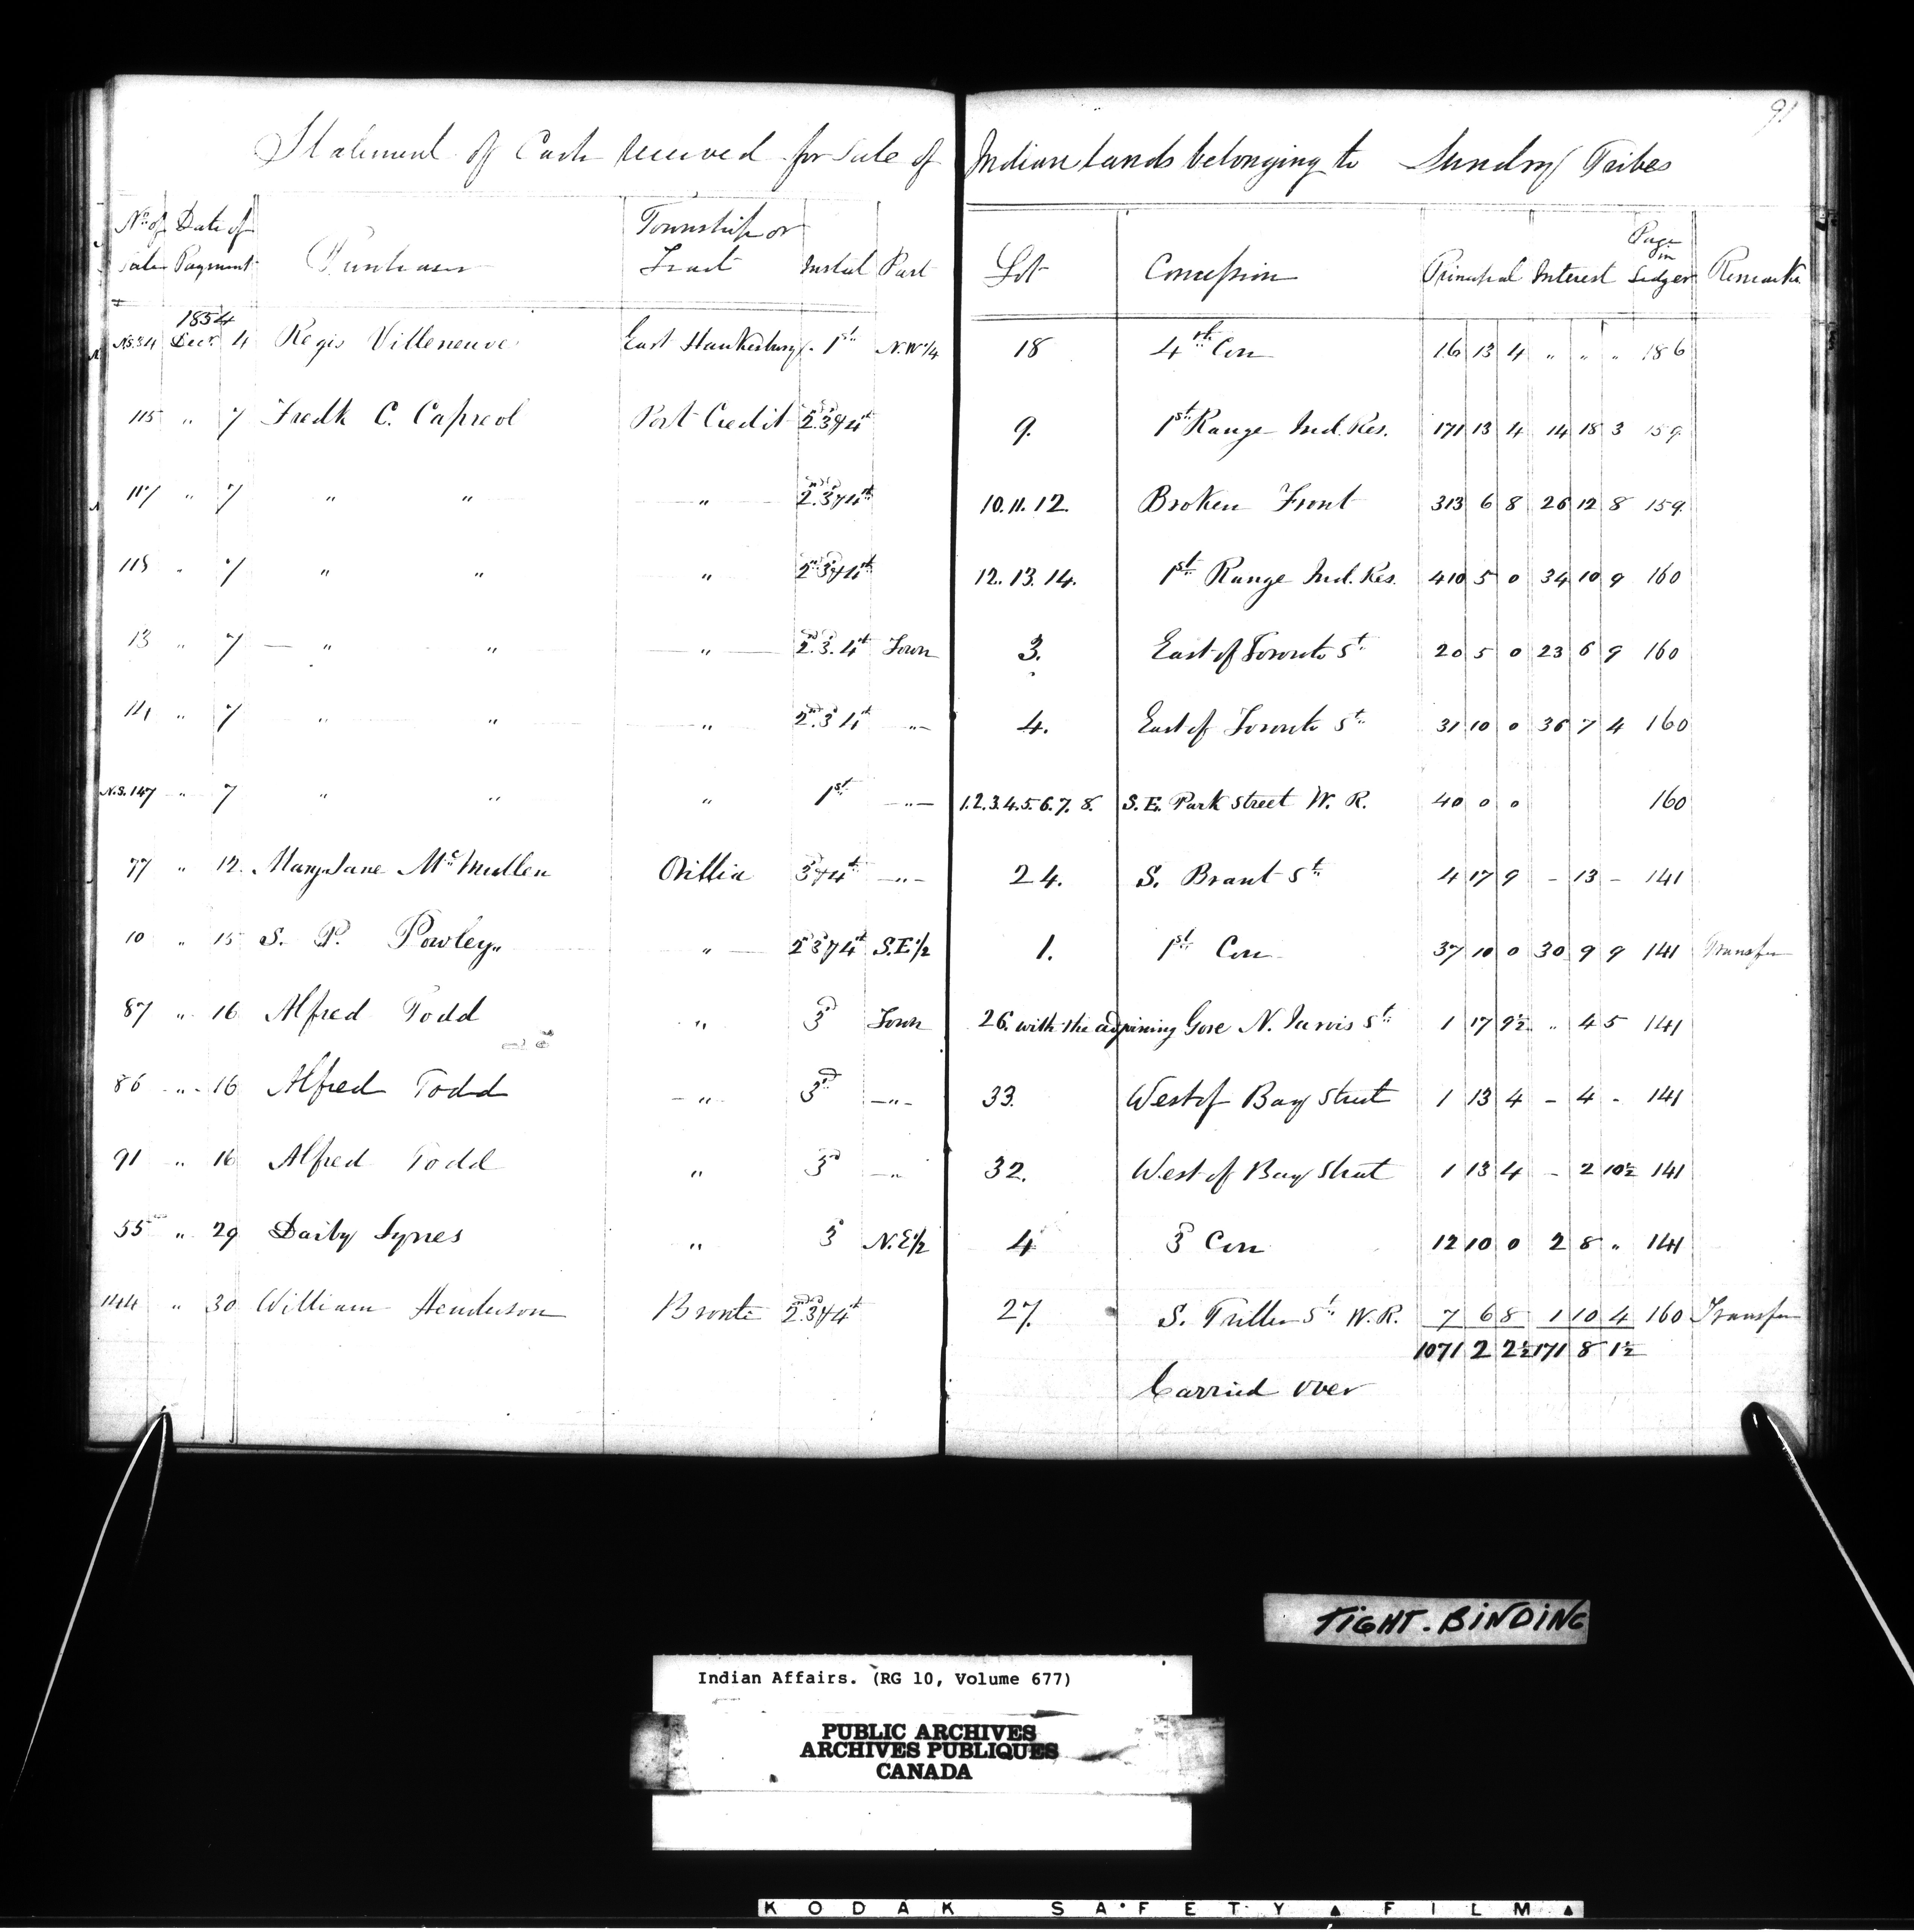 91
Statement of Cash received for Sale of Indian Lands belonging to Sundry Tribes
No. of Sale Date of Payment Purchaser Township or Tract Instal Part Lot Concession Principal Interest Page in Ledger Remarks
1854
N.S. 34 Decr. 4 Regis Villeneuve East Hawkesbury 1st N.W 1/4 18 4th Con 16 13 4 " " " 186
115 " 7 Fredk C. Capreol Port Credit 2.3 & 4th 9. 1st Range Ind. Res. 171 13 4 14 18 3 159
117 " 7 " " " 2.3 & 4th 10. 11. 12. Broken Front 313 6 8 26 12 8 159
118 " 7 " " " 2nd 3 & 4th 12. 13. 14. 1st Range Ind. Res. 410 5 0 34 10 9 160
13 " 7 " " " 2.3. 4th Town 3. East of Toronto St. 20 5 0 23 6 9 160
14 " 7 " " " 2.3 4th " 4. East of Toronto St. 31 10 0 36 7 4 160
N.S. 147 " 7 " " " 1st " 1.2.3.4.5.6.7.8. S.E. Park Street W. R. 40 0 0 160
77 " 12. Mary Jane McMullen Orillia 3 & 4th " 24. S. Brant St. 4 17 9 - 13 - 141
10 " 15 S. P. Powley " 2 3 & 4th S.E 1/2 1. 1st Con 37 10 0 30 9 9 141 Transfer
87 " 16 Alfred Todd " 3d Town 26. with the adjoining Gore N. Jarvis St. 1 17 9½ " 4 5 141
86 " 16 Alfred Todd " 3d " 33. West of Bay Street 1 13 4 - 4 - 141
91 " 16 Alfred Todd " 3d " 32. West of Bay Street 1 13 4 - 2 10½ 141
55 " 29 Darby Synes " 3d N.E 1/2 4 3d Con 12 10 0 2 8 " 141
144 " 30 William Henderson Bronte 2.3 & 4th 27. S. Triller St. W. R. 7 6 8 1 10 4 160 Transfer
1071 2 2½ 171 8 1½
Carried over
TIGHT. BINDING
Indian Affairs. (RG 10, Volume 677)
PUBLIC ARCHIVES
ARCHIVES PUBLIQUES
CANADA
KODAK SAFETY FILM